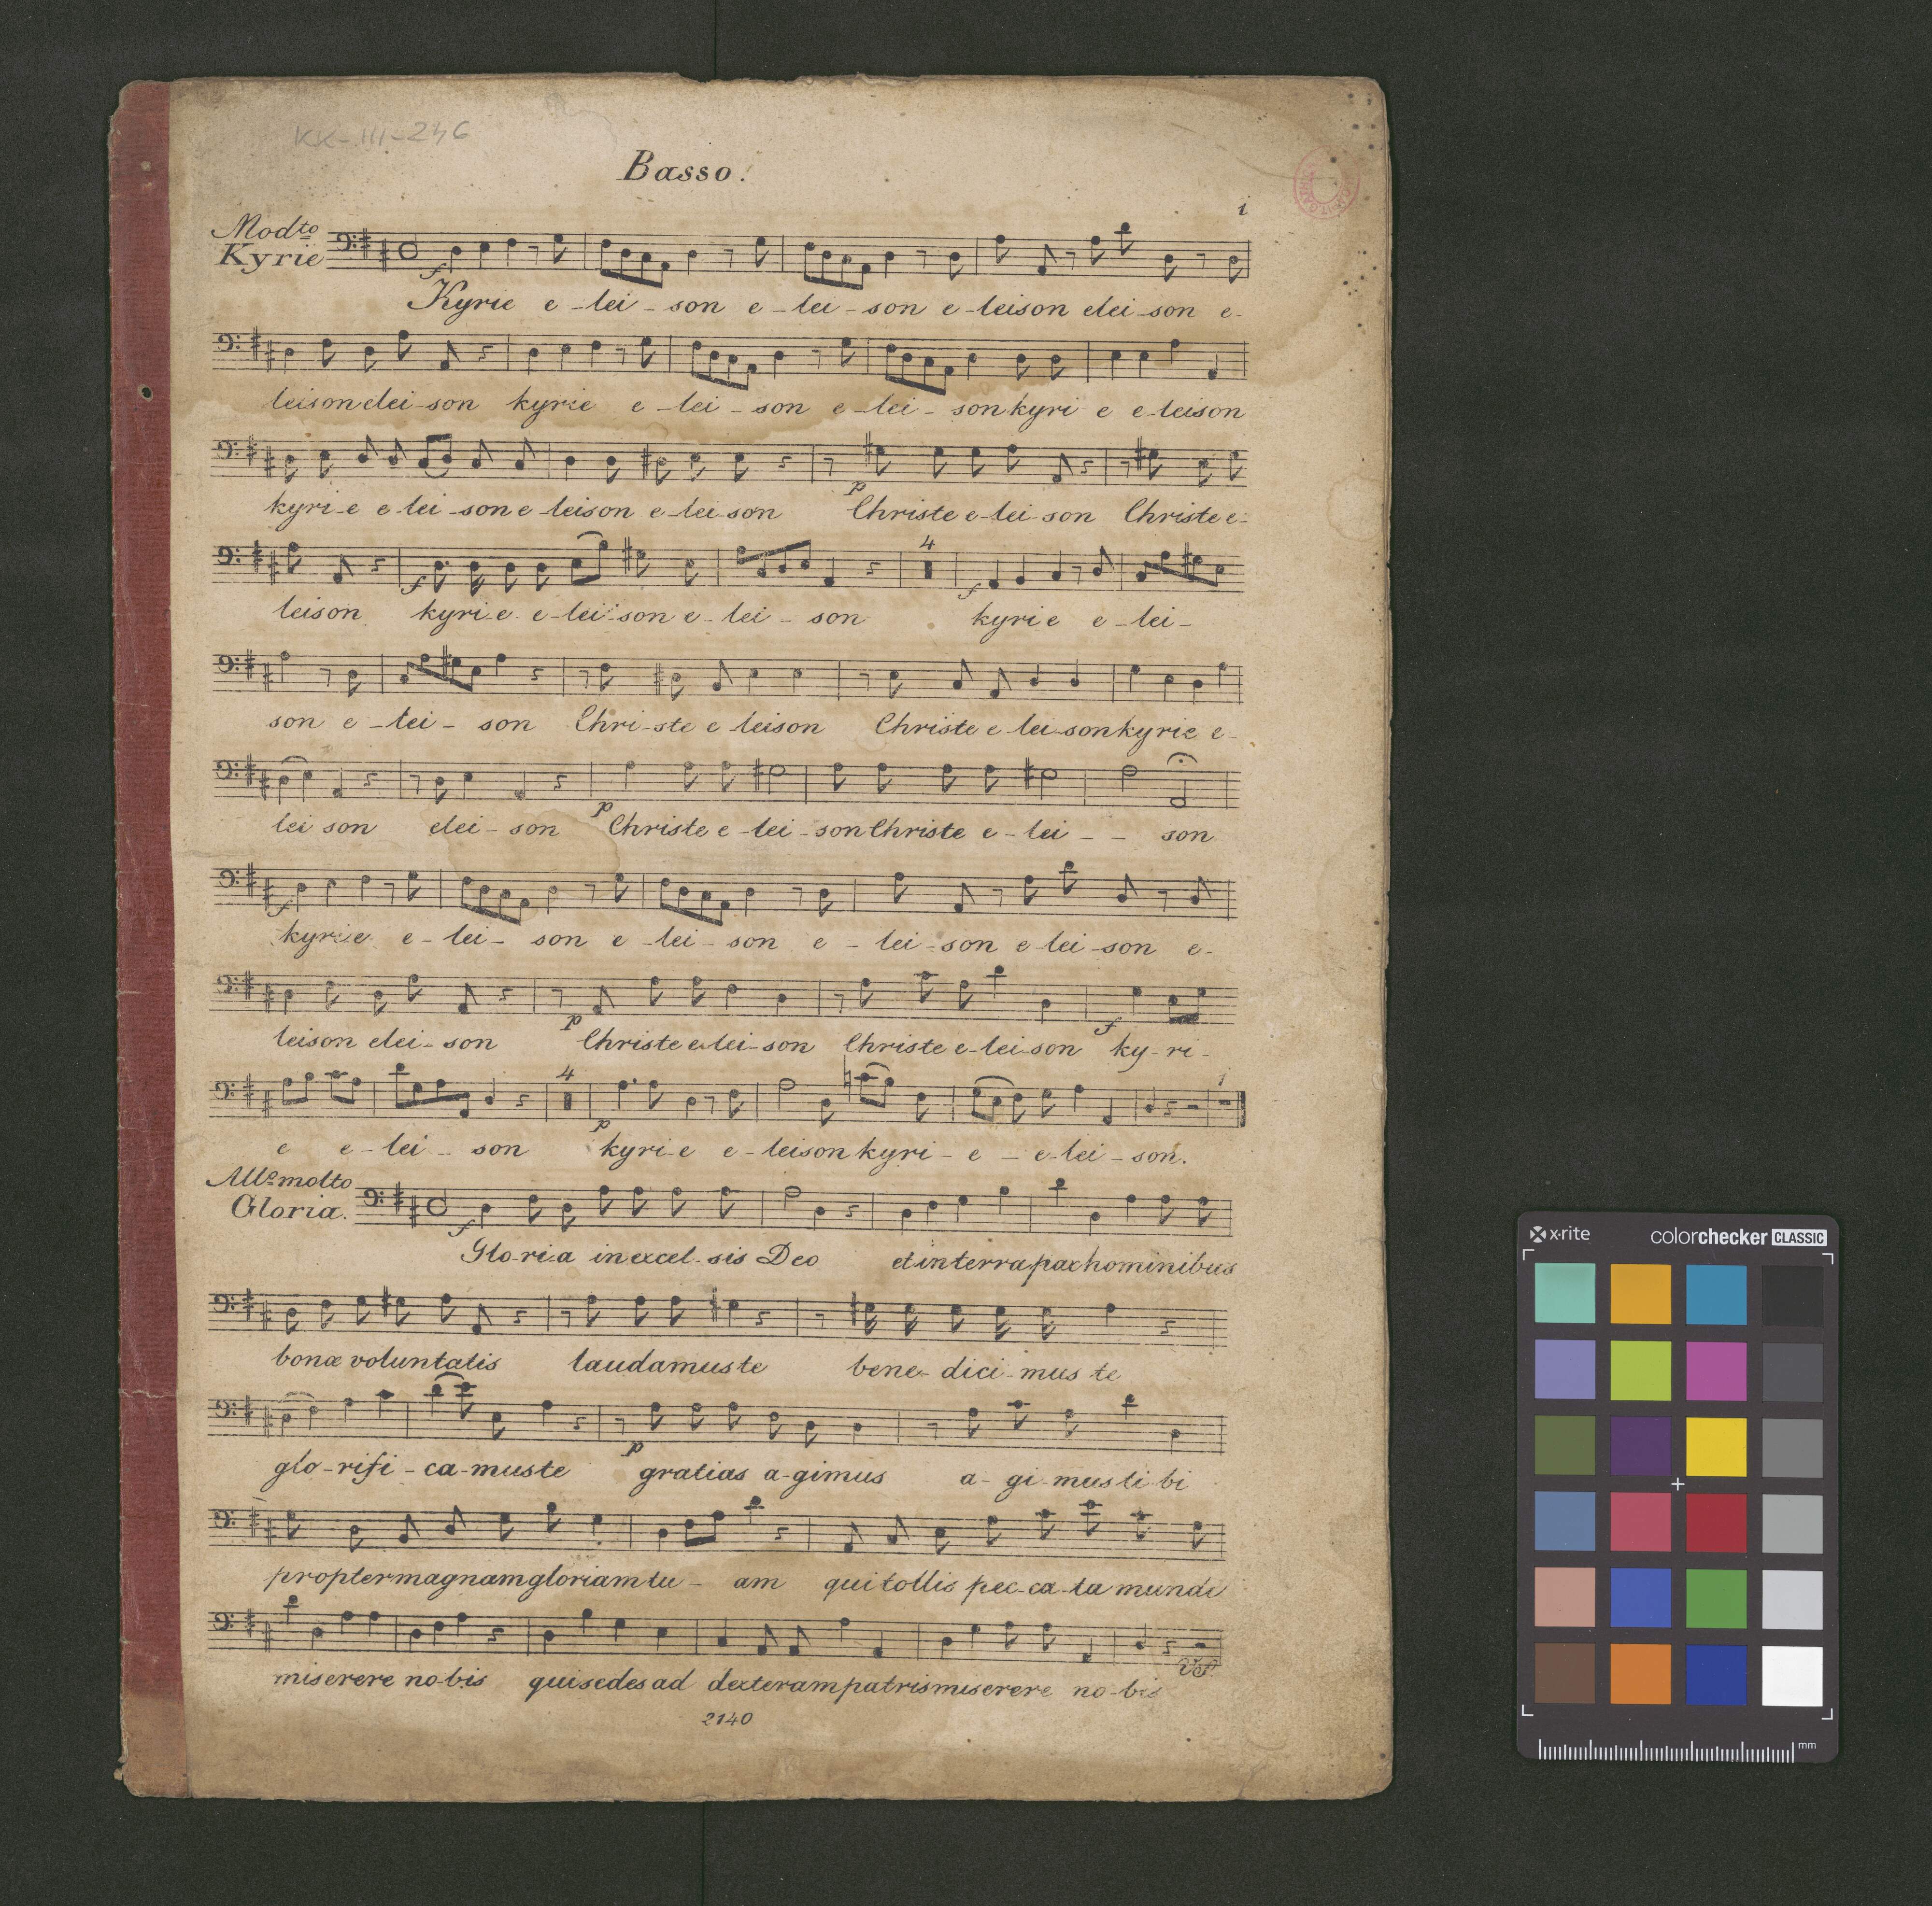 KK-III-246
Basso.
1
Modto
Kyrie
Kyrie e-lei-son e-lei-son e-leison elei-son e-
leison elei-son kyrie e-lei-son e-lei-son kyri e e-leison
kyri-e e-lei-son e leison e-lei-son Christe e-lei-son Christe e-
4
leison kyri-e e-lei-son e-lei-son kyrie e-lei-
son e-lei-son Chri-ste e leison Christe e-lei-son kyrie e-
lei son elei-son Christe e-lei-son Christe e-lei--son
kyrie e-lei-son e-lei-son e-lei-son e-lei-son e-
leison elei-son Christe e-lei-son Christe e-lei-son ky-ri-
4 1
e e-lei-son kyri-e e-leison kyri-e-e-lei-son.
Allo molto
Gloria.
Glo-ri-a in excel-sis Deo et in terra pax hominibus
bonæ voluntatis laudamus te bene-dici-mus te
glo-rifi-ca-mus te gratias a-gimus a-gi-mus ti bi
propter magnam gloriam tu-am qui tollis pec-ca-ta mundi
miserere no-bis qui sedes ad dexteram patris miserere no-bis
VS
2140
x-rite colorchecker CLASSIC
mm